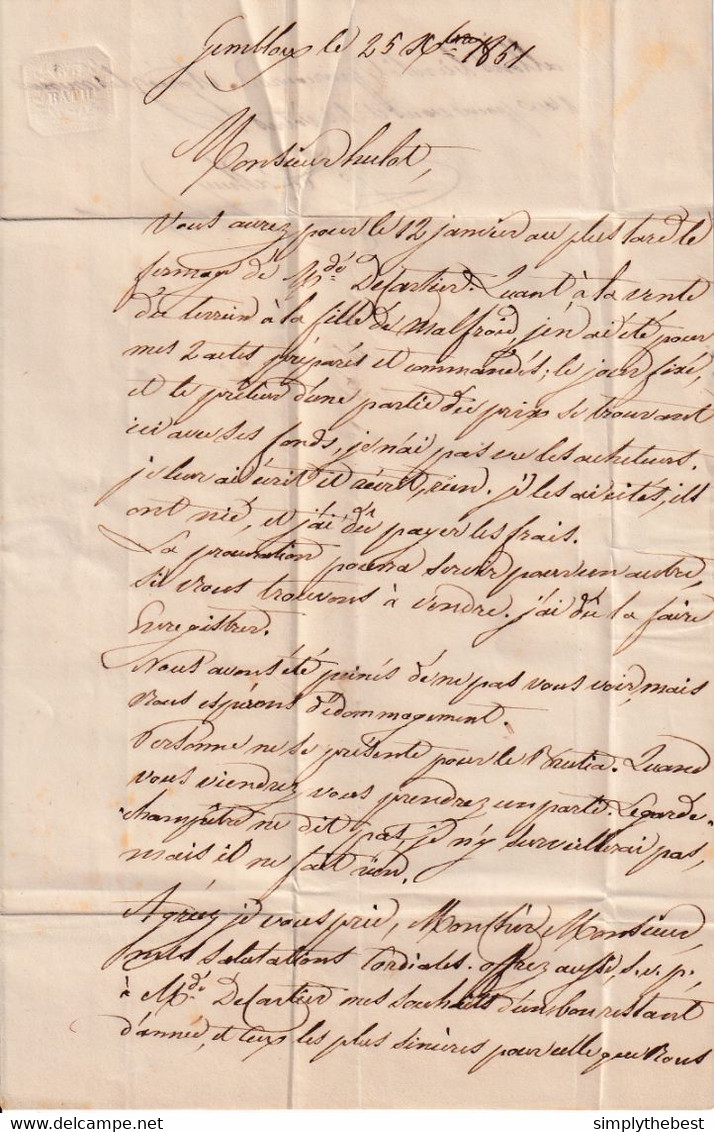 Gembloux le 25 Xbre 1851
BATH
Monsieur hulot,
Vous aurez pour le 12 janvier au plus tard le
fermage de Mde. DeCartier. Quant à la vente
du terrain à la fille de Malfroid, j'en ai été pour
mes 2 actes préparés et commandés; le jour fixé,
et le prêteur d'une partie du prix se trouvant
ici avec ses fonds, je n'ai pas vu les acheteurs.
je leur ai écrit et récrit, rien. j'les ai cités, ils
ont nié, et j'ai dû payer les frais.
La procuration pourra servir pour un autre,
si nous trouvons à vendre. j'ai dû la faire
Enregistrer.
Nous avons été peinés de ne pas vous voir, mais
Nous espérons dédommagement.
Personne ne se présente pour le
Quand
vous viendrez vous prendrez un parti. Le garde-
champêtre ne dit pas, je n'y surveillerai pas,
mais il ne fait rien.
Agréez je vous prie, Mon Cher Monsieur,
mes salutations Cordiales. offrez aussi, s. v. p.
à Mde. DeCartier mes souhaits d'un bon restant
d'année, et ceux les plus sincères pour celle que Nous
simplythebest